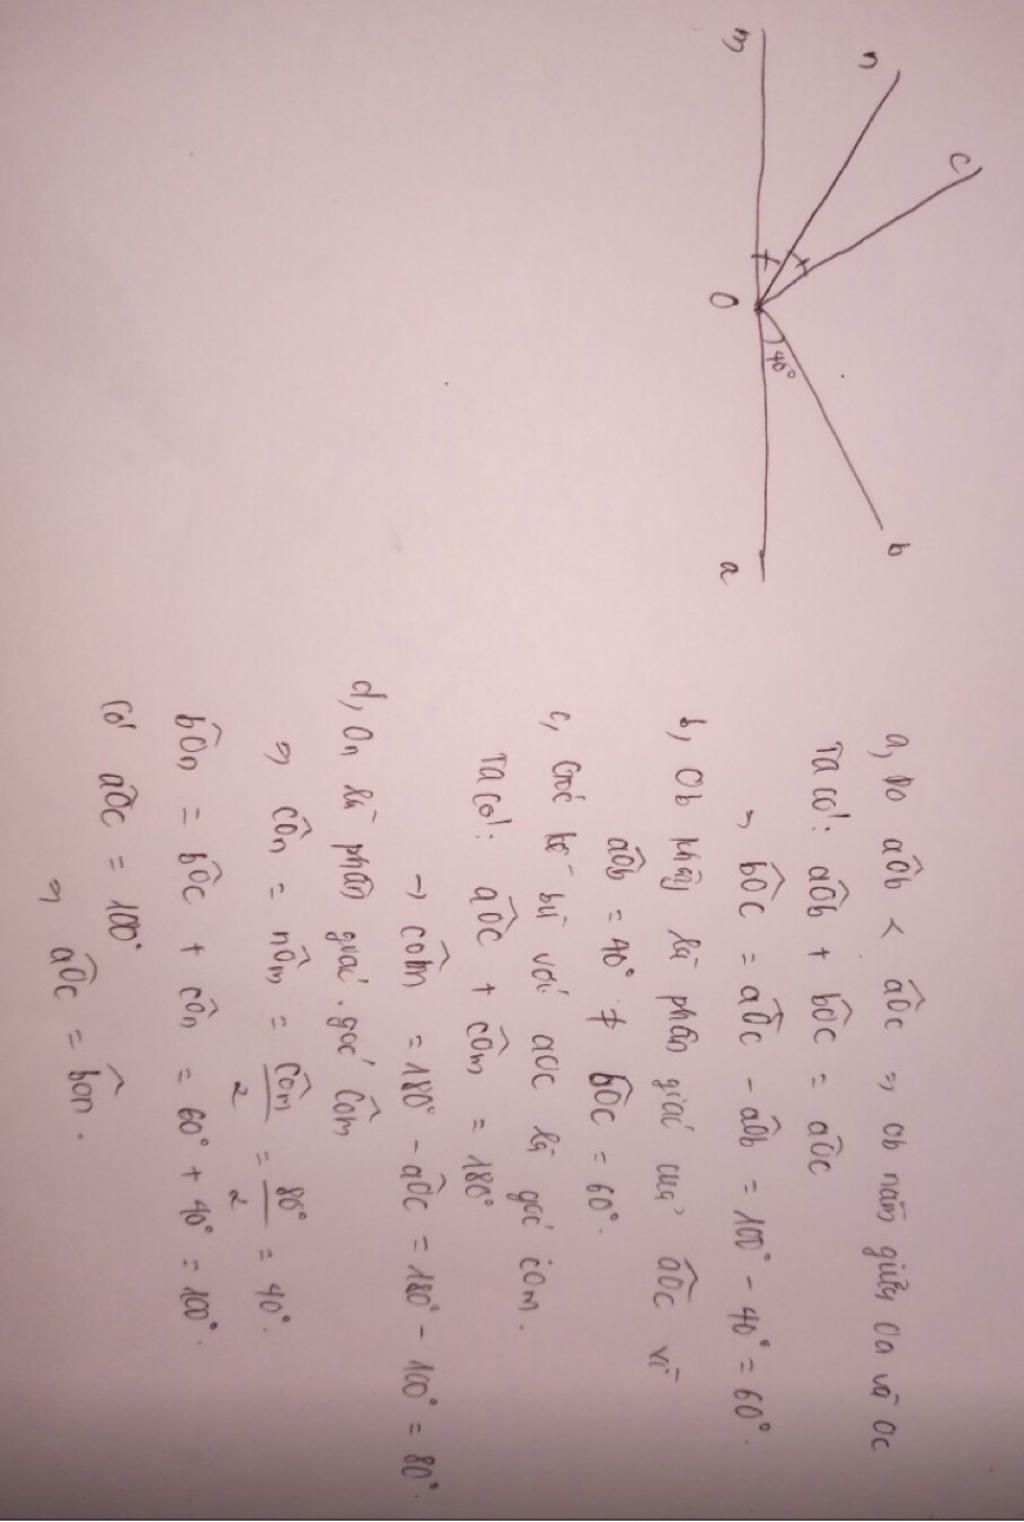 m
n
c
O
40°
b
a
a, Do aÔb < aÔc => Ob nằm giữa Oa và Oc
Ta có: aÔb + bÔc = aÔc
=> bÔc = aÔc - aÔb = 100° - 40° = 60°.
b, Ob không là phân giác của aÔc vì
aÔb = 40° ≠ bÔc = 60°.
c, Góc kề bù với aOc là góc cOm.
Ta có: aÔc + cÔm = 180°
→ cÔm = 180° - aÔc = 180° - 100° = 80°
d, On là phân giác góc cÔm
=> cÔn = nÔm = cÔm/2 = 80°/2 = 40°.
bÔn = bÔc + cÔn = 60° + 40° = 100°.
Có aÔc = 100°
=> aÔc = bÔn.